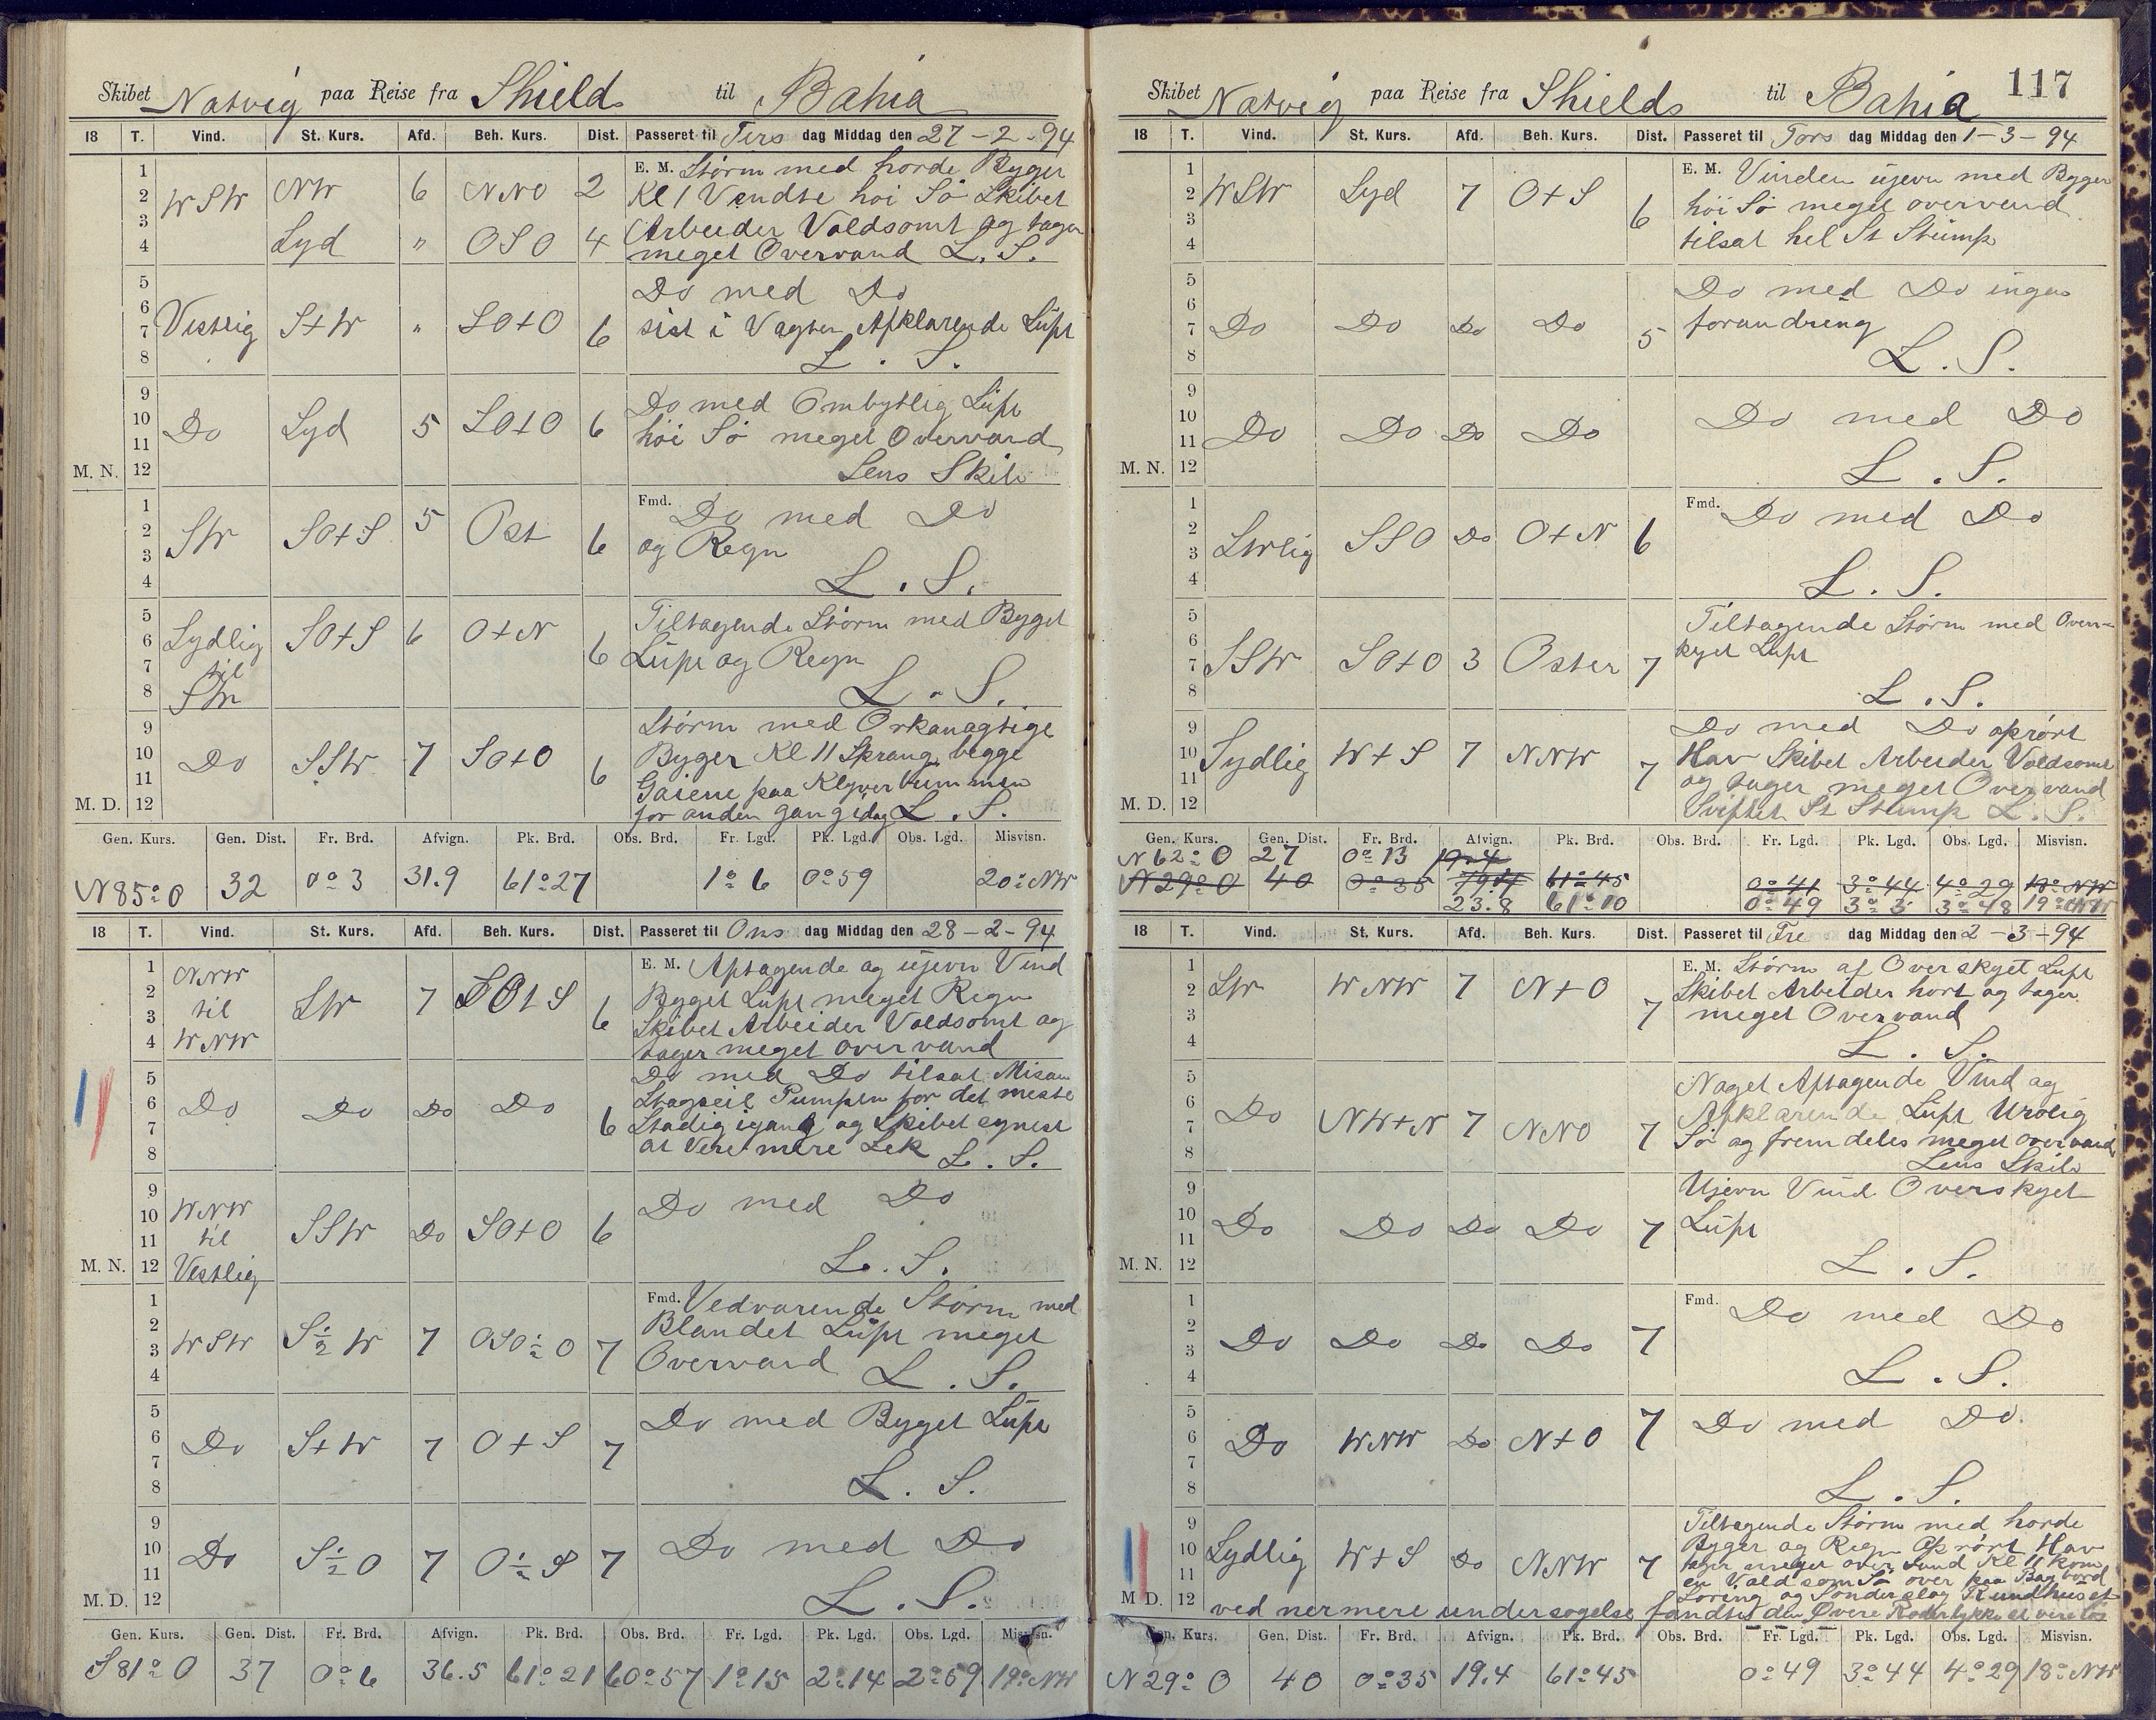 Skibet Natvig paa Reise fra Shields til Bahia
18 T. Vind. St. Kurs. Afd. Beh. Kurs. Dist. Passeret til Tirs dag Middag den 27-2-94
1 2 3 4 WSW NW 6 NNO 2
Syd " OSO 4
E. M. Storm med horde Byger
Kl 1 Vendte høi Sø Skibet
Arbeider Voldsomt og tager
meget Overvand L. S.
5 6 7 8 Vestlig S+W " SO+O 6
Do med Do
sist i Vagten Afklarende Luft
L. S.
9 10 11 12 M. N. Do Syd 5 SO+O 6
Do med Ombytlig Luft
høi Sø meget Overvand
Lens Skib
1 2 3 4 SW SO+S 5 Ost 6
Fmd. Do med Do
og Regn
L. S.
5 6 7 8 Sydlig til SW SO+S 6 O+N 6
Tiltagende Storm med Byget
Luft og Regn
L. S.
9 10 11 12 M. D. Do SSW 7 SO+O 6
Storm med Orkanagtige
Byger Kl 11 Sprang begge
Gaiene paa Klyverbummen
for anden gang idag L. S.
Gen. Kurs. Gen. Dist. Fr. Brd. Afvign. Pk. Brd. Obs. Brd. Fr. Lgd. Pk. Lgd. Obs. Lgd. Misvisn.
N 85° O 32 0° 3 31.9 61° 27 1° 6 0° 59 20° NW
18 T. Vind. St. Kurs. Afd. Beh. Kurs. Dist. Passeret til Ons dag Middag den 28-2-94
1 2 3 4 NNW til WNW SW 7 SO+S 6
E. M. Aftagende og ujevn Vind
Byget Luft meget Regn
Skibet Arbeider Voldsomt og
tager meget overvand
5 6 7 8 Do Do Do Do 6
Do med Do tilsat Misan
Stagseil Pumpen for det meste
Stadig igang og Skibet synest
at Vere mere Lek L. S.
9 10 11 12 M. N. WNW til Vestlig SSW Do SO+O 6
Do med Do
L. S.
1 2 3 4 WSW S½W 7 OSO½O 7
Fmd. Vedvarende Storm med
Blandet Luft meget
Overvand L. S.
5 6 7 8 Do S+W 7 O+S 7
Do med Byget Luft
L. S.
9 10 11 12 M. D. Do S½O 7 O½S 7
Do med Do
L. S.
Gen. Kurs. Gen. Dist. Fr. Brd. Afvign. Pk. Brd. Obs. Brd. Fr. Lgd. Pk. Lgd. Obs. Lgd. Misvisn.
S 81° O 37 0° 6 36.5 61° 21 60° 57 1° 15 2° 14 2° 59 19° NW
Skibet Natvig paa Reise fra Shields til Bahia 117
18 T. Vind. St. Kurs. Afd. Beh. Kurs. Dist. Passeret til Tors dag Middag den 1-3-94
1 2 3 4 WSW Syd 7 O+S 6
E. M. Vinden ujevn med Byger
høi Sø meget overvand
tilsat hel St Stump
5 6 7 8 Do Do Do Do 5
Do med Do ingen
forandreng
L. S.
9 10 11 12 M. N. Do Do Do Do
Do med Do
L. S.
1 2 3 4 SWlig SSO Do O+N 6
Fmd. Do med Do
L. S.
5 6 7 8 SSW SO+O 3 Oster 7
Tiltagende Storm med Over-
kyet Luft
L. S.
9 10 11 12 M. D. Sydlig W+S 7 NNW 7
Do med Do oprørt
Hav Skibet Arbeider Voldsomt
og tager meget Overvand
Sviftet St Stump L. S.
Gen. Kurs. Gen. Dist. Fr. Brd. Afvign. Pk. Brd. Obs. Brd. Fr. Lgd. Pk. Lgd. Obs. Lgd. Misvisn.
N 62° O 27 0° 13 19.4
N 29° O 40 0° 35 19.4 61° 45 0° 41 3° 44 4° 29 18° NW
23.8 61° 10 0° 49 3° 3 3° 48 19° NW
18 T. Vind. St. Kurs. Afd. Beh. Kurs. Dist. Passeret til Fre dag Middag den 2-3-94
1 2 3 4 SW WNW 7 N+O 7
E. M. Storm af Overskyet Luft
Skibet Arbeider hort og tager
meget Overvand
L. S.
5 6 7 8 Do NW+N 7 NNO 7
Noget Aftagende Vind og
Afklarende Luft Urolig
Sø og fremdeles meget overvand
Lens Skib
9 10 11 12 M. N. Do Do Do Do 7
Ujevn Vind Overskyet
Luft
L. S.
1 2 3 4 Do Do Do Do 7
Fmd. Do med Do
L. S.
5 6 7 8 Do WNW Do N+O 7
Do med Do.
L. S.
9 10 11 12 M D. Sydlig W+S Do NNW 7
Tiltagende Storm med horde
Byger og Regn Oprørt Hav
tager meget over vand Kl 11 kom
en Voldsom Sø over paa Bagbord
Loring og Sønderslog Rundhuset
ved nermere undersøgelse fandtes den Øvere Roderlykke at vere løs
Gen. Kurs. Gen. Dist. Fr. Brd. Afvign. Pk. Brd. Obs. Brd. Fr. Lgd. Pk. Lgd. Obs. Lgd. Misvisn.
N 29° O 40 0° 35 19.4 61° 45 0° 49 3° 44 4° 29 18° NW